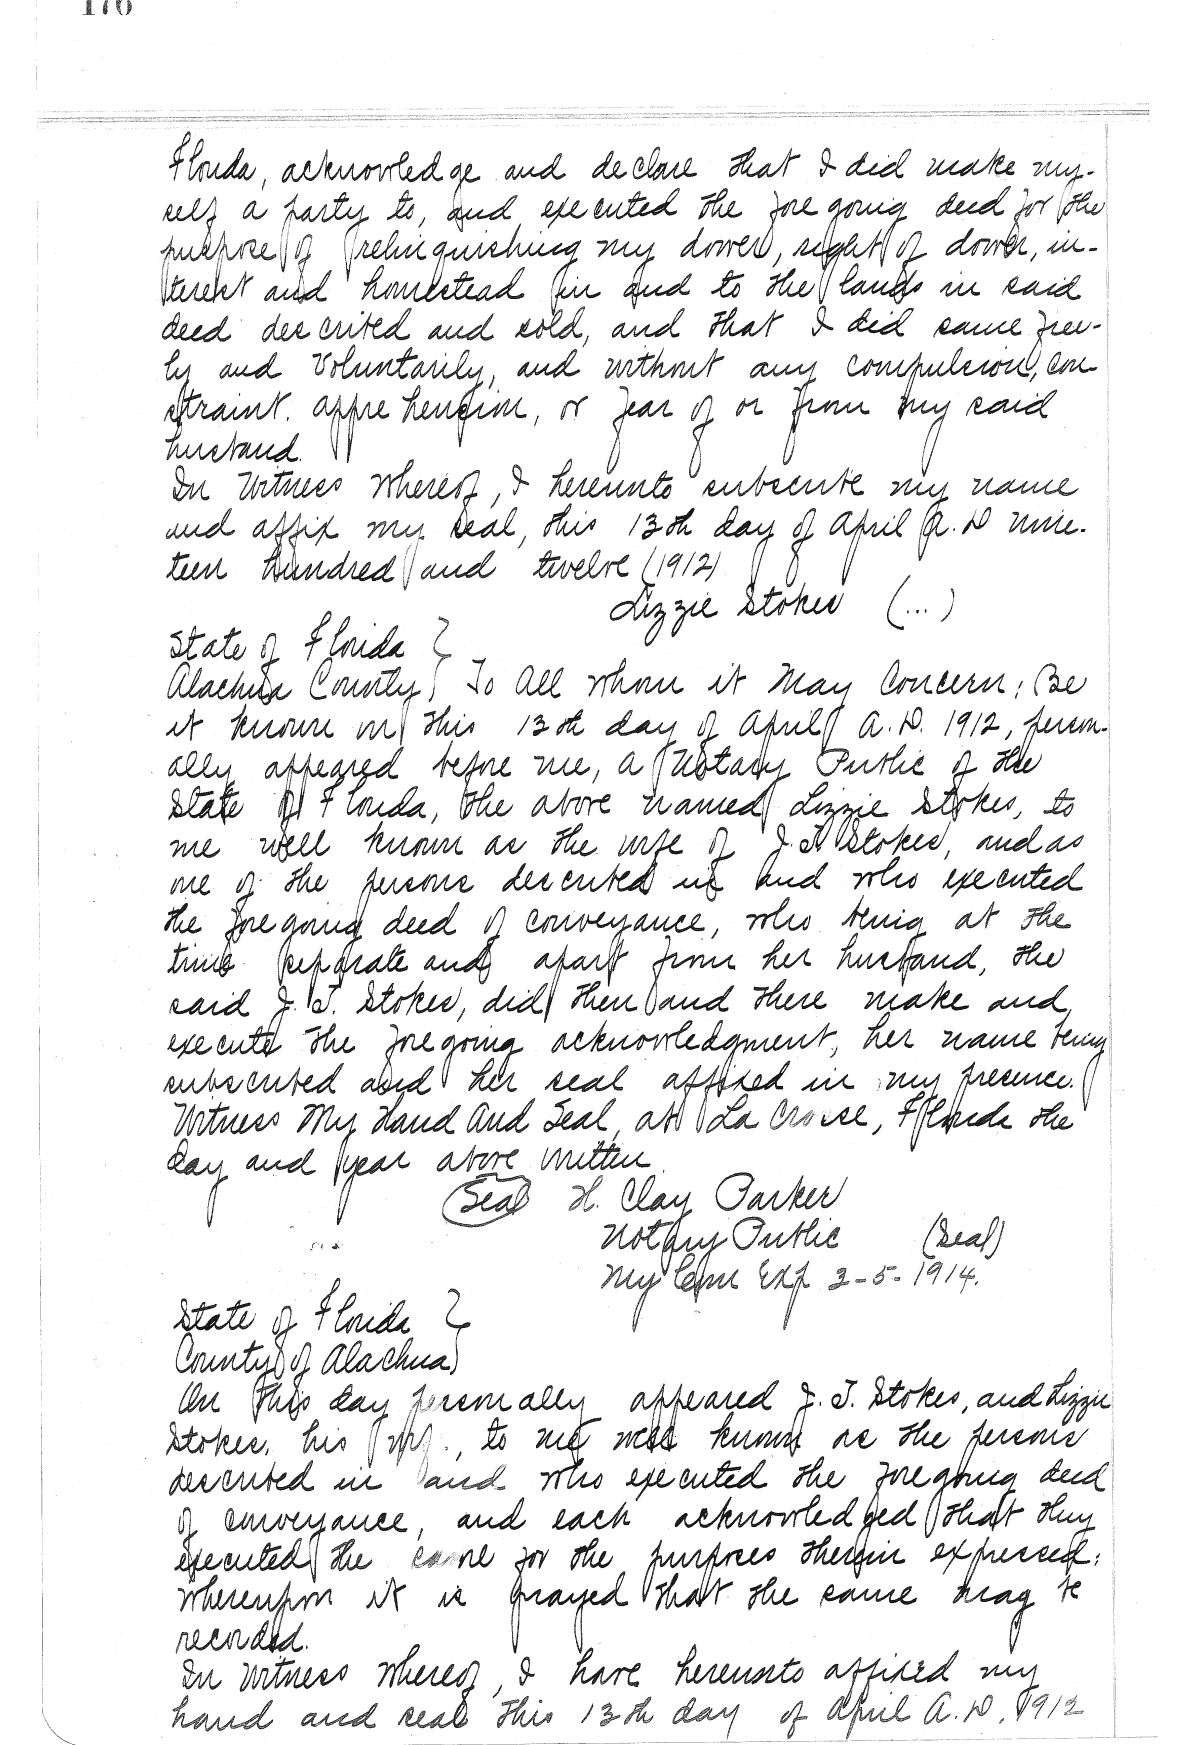 176
Florida, acknowledge and declare that I did make my-
self a party to, and executed the foregoing deed for the
purpose of relinquishing my dower, right of dower, in-
terest and homestead in and to the lands in said
deed described and sold, and that I did same free-
ly and Voluntarily, and without any compulsion, con-
straint. apprehension, or fear of or from my said
husband.
In Witness Whereof, I hereunto subscribe my name
and affix my seal, this 13th day of April A.D nine-
teen hundred and twelve (1912)
Lizzie Stokes (...)
State of Florida }
Alachua County } To All Whom it May Concern; Be
it known on this 13th day of April A.D. 1912, person-
ally appeared before me, a Notary Public of the
State of Florida, the above named Lizzie Stokes, to
me well known as the wife of J.T. Stokes, and as
one of the persons described in and who executed
the foregoing deed of conveyance, who being at the
time separate and apart from her husband, the
said J. T. Stokes, did then and there make and
execute the foregoing acknowledgment, her name being
subscribed and her seal affixed in my presence.
Witness My Hand And Seal, at La Crosse, Florida the
day and year above written
(Seal) H. Clay Parker
Notary Public (Seal)
My Com Exp 2-5-1914.
State of Florida }
County of Alachua }
On this day personally appeared J. T. Stokes, and Lizzie
Stokes. his wf., to me well known as the persons
described in and who executed the foregoing deed
of conveyance, and each acknowledged that they
executed the same for the purposes therein expressed;
whereupon it is prayed that the same may be
recorded.
In Witness Whereof, I have hereunto affixed my
hand and seal this 13th day of April A.D. 1912